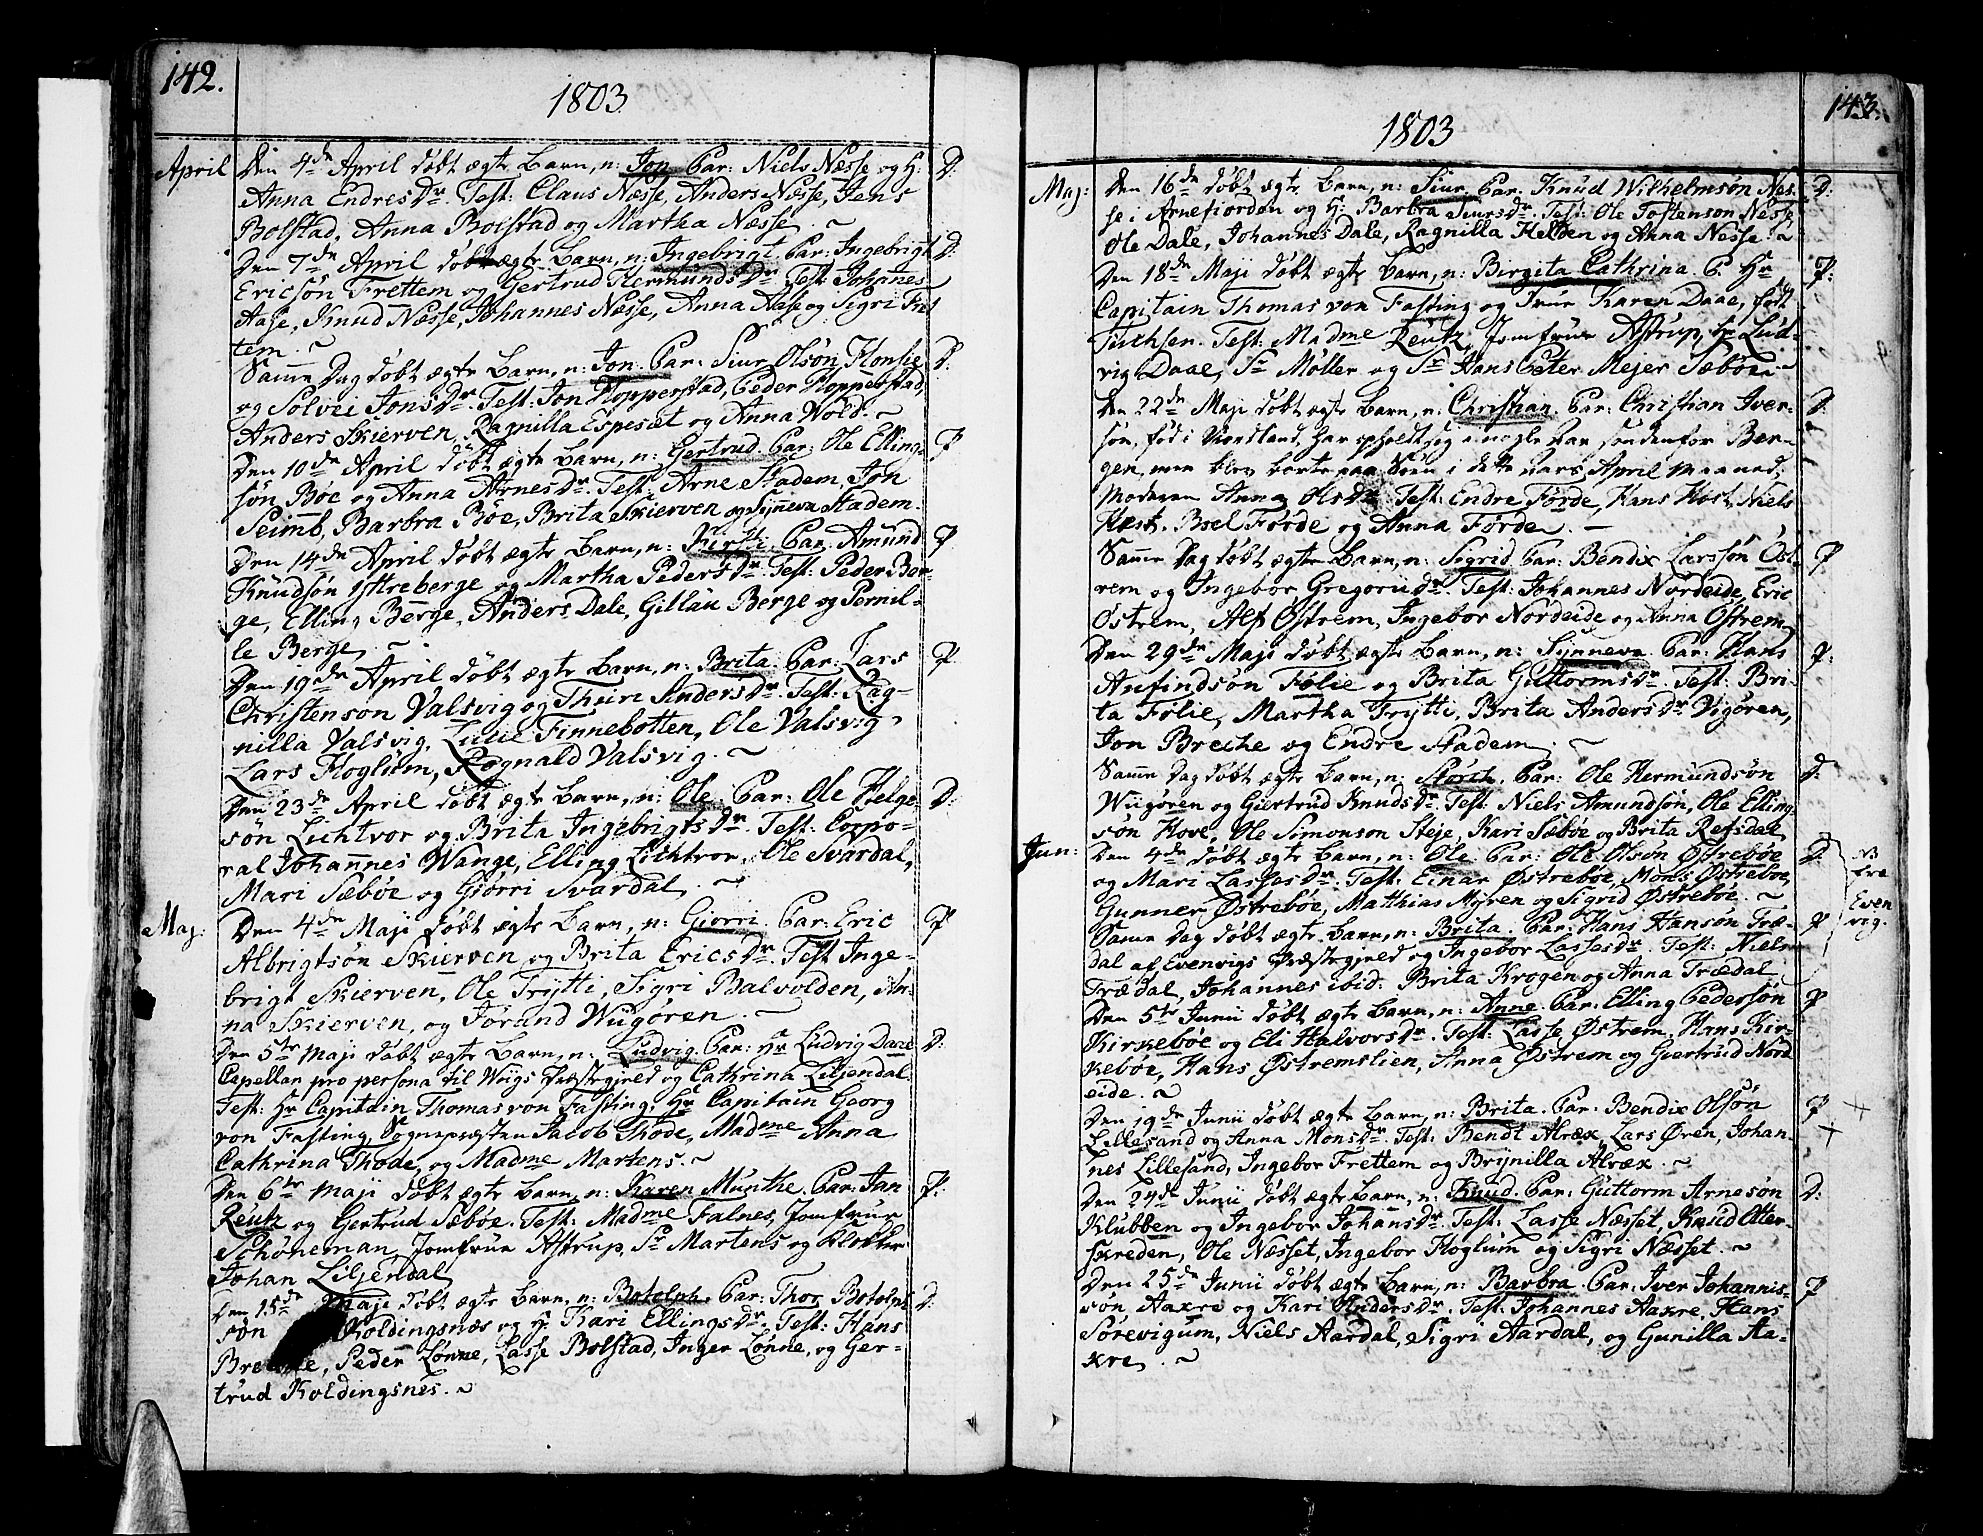 142.
1803
April
Den 4de April døbt ægte Barn, n: Jon Par: Niels Næsse og H: D:
Anna EndresDr. Test: Claus Næsse, Anders Næsse, Jens
Bolstad, Anna Bolstad og Martha Næsse. ~
Den 7de April døbt ægte Barn, n: Ingebrigt. Par: Ingebrigt D:
Ericsøn Frettem og Gertrud HermundsDr Test: Johannes
Aase, Knud Næsse, Johannes Næsse, Anna Aase og Sigri Fret
tem. ~
Samme Dag døbt ægte Barn, n: Jon. Par: Siur Olsøn D:
og Solvei JonsDr. Test: Jon Hopperstad, Peder Hopperstad,
Anders Skierven, Ragnilla Espesæt og Anna Wold. ~
Den 10de April døbt ægte Barn, n: Gertrud. Par: Ole Elling- P
søn Bøe og Anna ArnesDr. Test: Arne Stadem, Jon
Seimb, Barbra Bøe, Brita Skierven og Synneva Stadem.
Den 14de April døbt ægte Barn, n: Kirsti. Par: Amund P
Knudsøn Ytreberge og Martha PedersDr. Test: Peder Ber-
ge, Elling Berge, Anders Dale, Gillau Berge og Pernil-
le Berge. ~
Den 19de April døbt ægte Barn, n: Brita. Par: Lars P.
Christenson Valsvig og Thuri AndersDr. Test: Rag-
nilla Valsvig, Lucie Finnebotten, Ole Valsvig,
Lars Hoglum, Rognald Valsvig. ~
Den 23de April døbt ægte Barn, n: Ole. Par: Ole Helge- D:
søn Lichtvor og Brita IngebrigtsDr. Test: Corpo-
ral Johannes Wange, Elling Lichtvor, Ole Svardal,
Mari Sæbøe og Giørri Svardal. ~
Maj:
Den 4de Maji døbt ægte Barn, n: Giorri. Par: Eric P
Albrigtsøn Skierven og Brita EricsDr. Test: Inge-
brigt Skierven, Ole Trytti, Sigri Balvolden, An-
na Skierven, og Jørand Wiigøren. ~
Den 5te Maji døbt ægte Barn, n: Ludvig. Par: Hr Ludvig Daae D:
Capellan pro persona til Wiigs Præstegjeld og Cathrina Liljendal.
Test: Hr Capitain Thomas von Fasting, Hr Capitain Georg
von Fasting, Sognepræsten Jacob Thode, Madme Anna
Cathrina Thode, og Madme Martens. ~
Den 6te Maji døbt ægte Barn, n: Karen Munthe. Par: Jan P.
Reutz og Gertrud Sæbøe. Test: Madme Falnes, Jomfrue
Schøneman, Jomfrue Astrup, Sr Martens og Klokker
Johan Liljendal
Den 15de Maji døbt ægte Barn, n: Botolph. Par: Thor Botolph D:
søn Koldingsnæs og H: Kari EllingsDr. Test: Hans
Peder Lønne, Lasse Bolstad, Inger Lønne, og Ger-
trud Koldingsnes. ~
143.
1803
Maj:
Den 16de døbt ægte Barn, n: Siur. Par: Knud Wilhelmsøn Nes- D:
se i Arnefiorden og H: Barbra SiursDr. Test: Ole Tostenson Nesse,
Ole Dale, Johannes Dale, Ragnilla Helden og Anna Nesse. ~
Den 18de Maji døbt ægte Barn, n: Birgita Cathrina. P. Hr P:
Capitain Thomas von Fasting og Frue Karen Daae, født
Fuchsen. Test: Madme Reutz, Jomfrue Astrup, Hr Lud-
vig Daae, Sr Møller og Sr Hans Peter Mejer Sæbøe. ~
Den 22de Maji døbt ægte Barn, n: Christian. Par: Christian Iver- D.
søn, fød i Nordland, har opholdt sig nogle Aar søndenfor Ber-
gen, men blev borte paa Søen i dette Aars April Maaned.
Moderen Anna OlsDr. Test: Endre Førde, Hans Høst, Niels
Høst, Boel Førde og Anna Førde. ~
Samme Dag døbt ægte Barn, n: Sigrid. Par: Bendix Larssøn Øst- P
rem og Ingebor GregoriiDr. Test: Johannes Nordeide, Eric
Østrem, Alf Østrem, Ingebor Nordeide og Anna Østrem.
Den 29de Maji døbt ægte Barn, n: Synneva. Par: Hans P.
Anfindsøn Følie og Brita GuttormsDr. Test: Bri-
ta Følie, Martha Trytti, Brita AndersDr Vigøren,
Jon Breche og Endre Stadem. ~
Samme Dag døbt ægte Barn, n: Størch. Par: Ole Hermundsøn D:
Wiigøren og Giertrud KnudsDr. Test: Niels Amundsøn, Ole Elling-
søn Hove, Ole Simonson Steje, Kari Sæbøe og Brita Refsdal.
Jun:
Den 4de døbt ægte Barn, n: Ole. Par: Ole Olsøn Østrebøe D:
og Mari LassesDr. Test: Einar Østrebøe, Mons Østrebøe,
Gunner Østrebøe, Matthias Myren og Sigrid Østrebøe. ~
NB
fra
Even
vig.
Samme Dag døbt ægte Barn, n: Brita. Par: Hans Hansøn Træ- P
dal af Evenvigs Præstegjeld og Ingebor LassesDr. Test: Niels
Trædal, Johannes ibid: Brita Krogen og Anna Trædal
Den 5te Junii døbt ægte Barn, n: Anne. Par: Elling Pedersøn P
Kirkebøe og Eli HalvorsDr. Test: Lasse Østrem, Hans Kir-
kebøe, Hans Østremslien, Anna Østrem og Giertrud Nord
eide. ~
Den 19de Junii døbt ægte Barn, n: Brita. Par: Bendix Olsøn P +
Lillesand og Anna MonsDr. Test: Bendt Alræx, Lars Øren, Johan- +
nes Lillesand, Ingebor Frettem og Brynilla Alræx. ~
Den 24de Junii døbt ægte Barn, n: Knud. Par: Guttorm Arnesøn D:
Klubben og Ingebor JohansDr. Test: Lasse Næsset, Knud Otter-
skreden, Ole Næsset, Ingebor Hoglum og Sigri Næsset. ~
Den 25de Junii døbt ægte Barn, n: Barbra. Par: Iver Johannis- P
søn Aaxre og Kari AndersDr. Test: Johannes Aaxre, Hans
Sørevigum, Niels Aardal, Sigri Aardal, og Gunilla Aa-
xre. ~